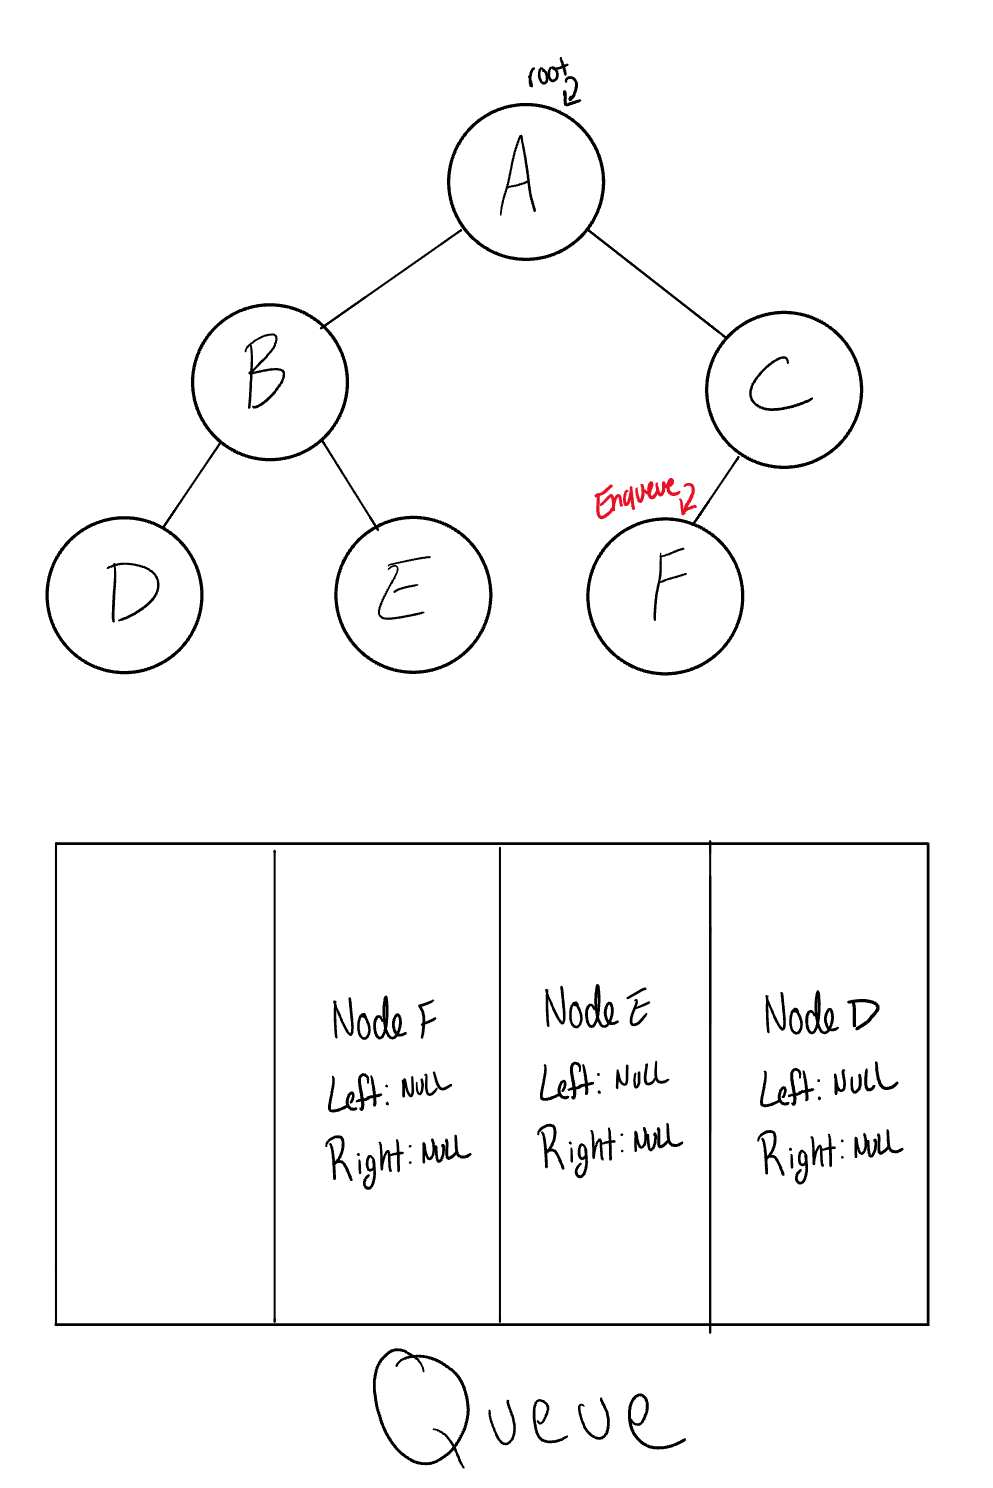 root
A
B
C
Enqueue
D
E
F
Node F
Left: NULL
Right: NULL
Node E
Left: NULL
Right: NULL
Node D
Left: NULL
Right: NULL
Queue